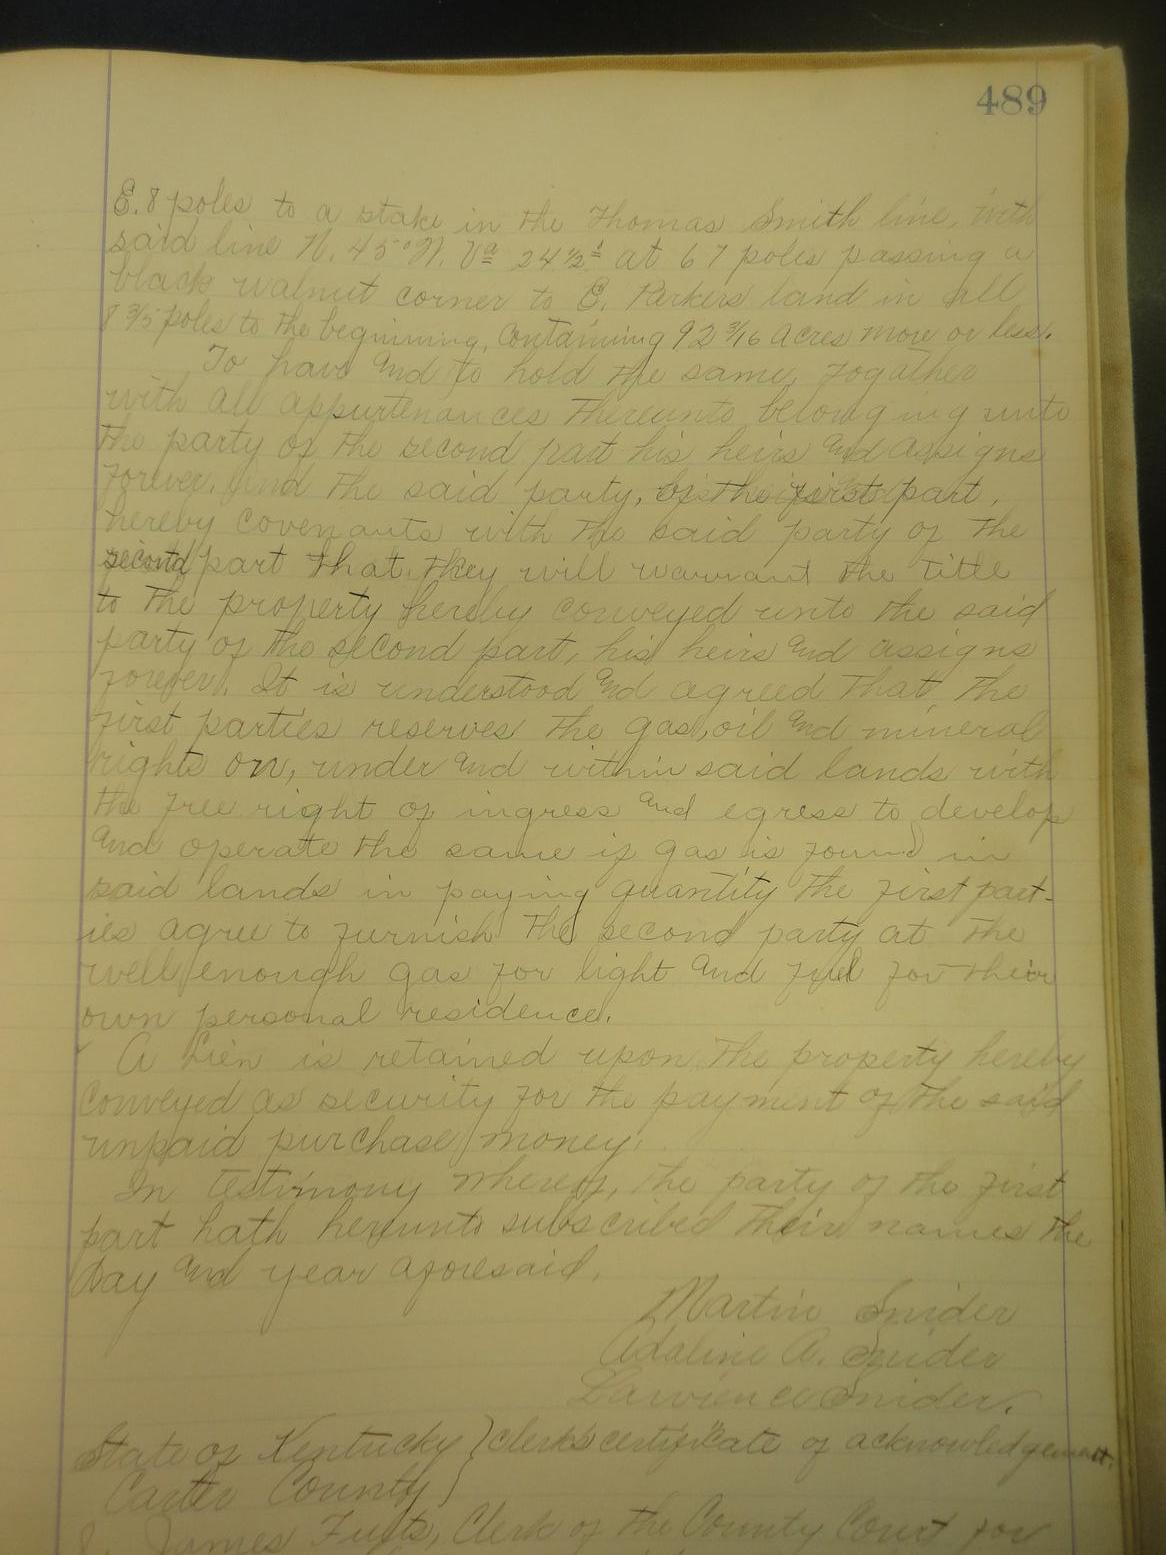 489
E. 8 poles to a stake in the Thomas Smith line, with
said line N. 45° W. Va 24½ at 67 poles passing a
black walnut corner to E. Parkers land in all
8 3/5 poles to the beginning, containing 92 3/16 acres more or less.
To have and to hold the same, togather
with all appurtenances thereunto belonging unto
the party of the second part his heirs and assigns
forever. And the said party, of the first part,
hereby covenants with the said party of the
second part that they will warrant the title
to the property hereby conveyed unto the said
party of the second part, his heirs and assigns
forever. It is understood and agreed that the
first parties reserves the gas, oil and mineral
rights on, under and within said lands with
the free right of ingress and egress to develop
and operate the same if gas is found in
said lands in paying quantity the first part-
ies agree to furnish the second party at the
well enough gas for light and fuel for their
own personal residence.
A Lien is retained upon the property hereby
conveyed as security for the payment of the said
unpaid purchase money.
In testimony whereof, the party of the first
part hath hereunto subscribed their names the
day and year aforesaid.
Martin Snider
Adaline A. Snider
Lawrience Snider.
State of Kentucky } Clerk's certificate of acknowledgement.
Carter County }
James Fults, Clerk of the County Court for